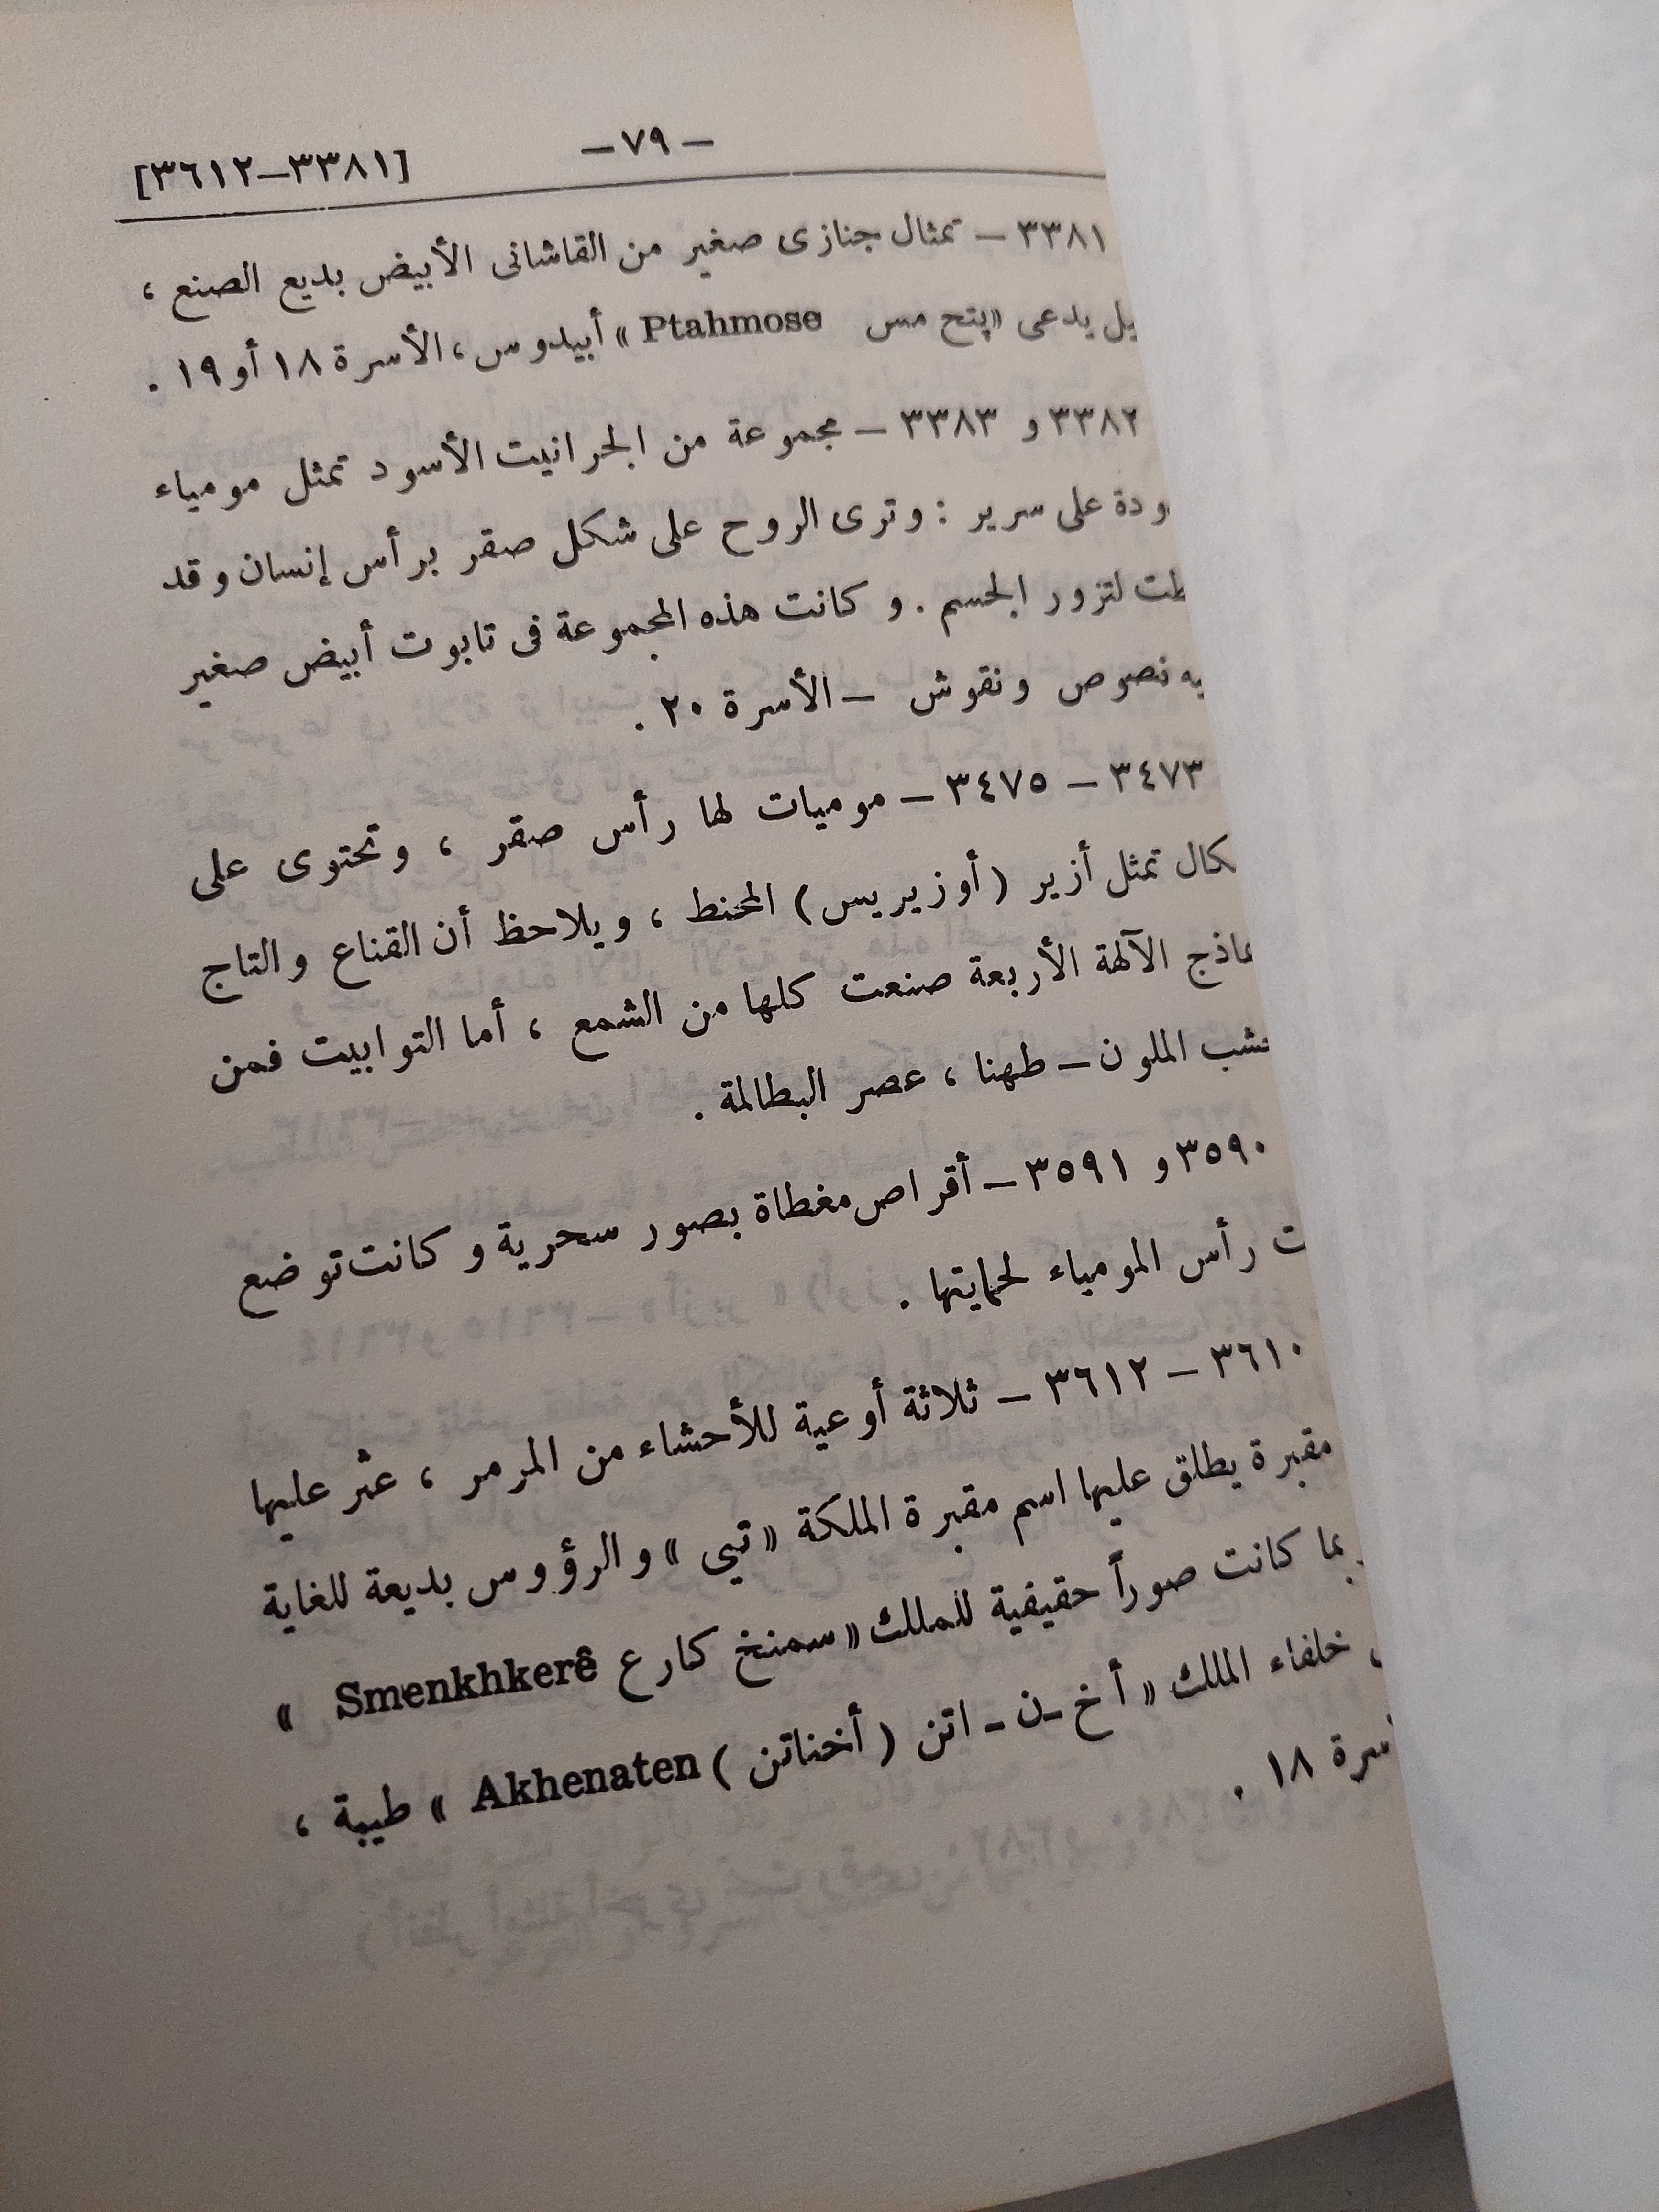 [٣٣٨١–٣٦١٢] –٧٩–
٣٣٨١ – تمثال جنازى صغير من القاشانى الأبيض بديع الصنع ،
يدعى «پتح مس Ptahmose» أبيدوس، الأسرة ١٨ أو ١٩ .
٣٣٨٢ و ٣٣٨٣ – مجموعة من الجرانيت الأسود تمثل مومياء
على سرير : وترى الروح على شكل صقر برأس إنسان وقد
لتزور الجسم . وكانت هذه المجموعة فى تابوت أبيض صغير
نصوص ونقوش – الأسرة ٢٠ .
٣٤٧٣ – ٣٤٧٥ – موميات لها رأس صقر ، وتحتوى على
تمثل أزير (أوزيريس) المحنط ، ويلاحظ أن القناع والتاج
الآلهة الأربعة صنعت كلها من الشمع ، أما التوابيت فمن
الملون – طهنا ، عصر البطالمة .
٣٥٩٠ و ٣٥٩١ – أقراص مغطاة بصور سحرية وكانت توضع
رأس المومياء لحمايتها .
٣٦١٠ – ٣٦١٢ – ثلاثة أوعية للأحشاء من المرمر ، عثر عليها
مقبرة يطلق عليها اسم مقبرة الملكة «تيي» والرؤوس بديعة للغاية
كانت صوراً حقيقية للملك «سمنخ كارع Smenkhkerê »
خلفاء الملك «أخ-ن-اتن (أخناتن) Akhenaten» طيبة ،
١٨ .